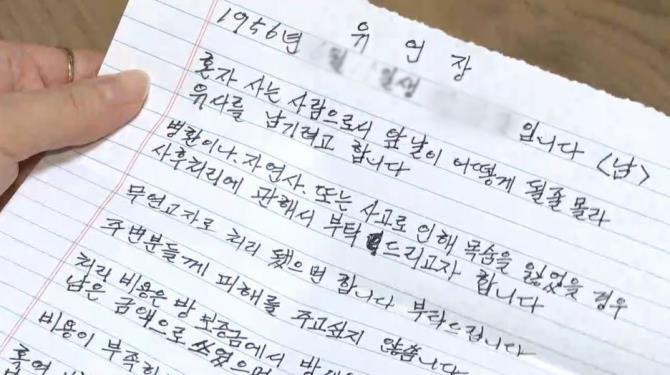 유 언 장
1956년 월 일생 입니다 <남>
혼자 사는 사람으로서 앞날이 어떻게 될줄 몰라
유사를 남기려고 합니다
병환이나, 자연사. 또는 사고로 인해 목숨을 잃었을 경우
사후처리에 관해서 부탁드리고자 합니다
무연고자로 처리 됐으면 합니다 부탁드립니다
주변분들께 피해를 주고싶지 않습니다
처리 비용은 방 보증금에서 방세
남은 금액으로 쓰였으면
비용이 부족하
혹여